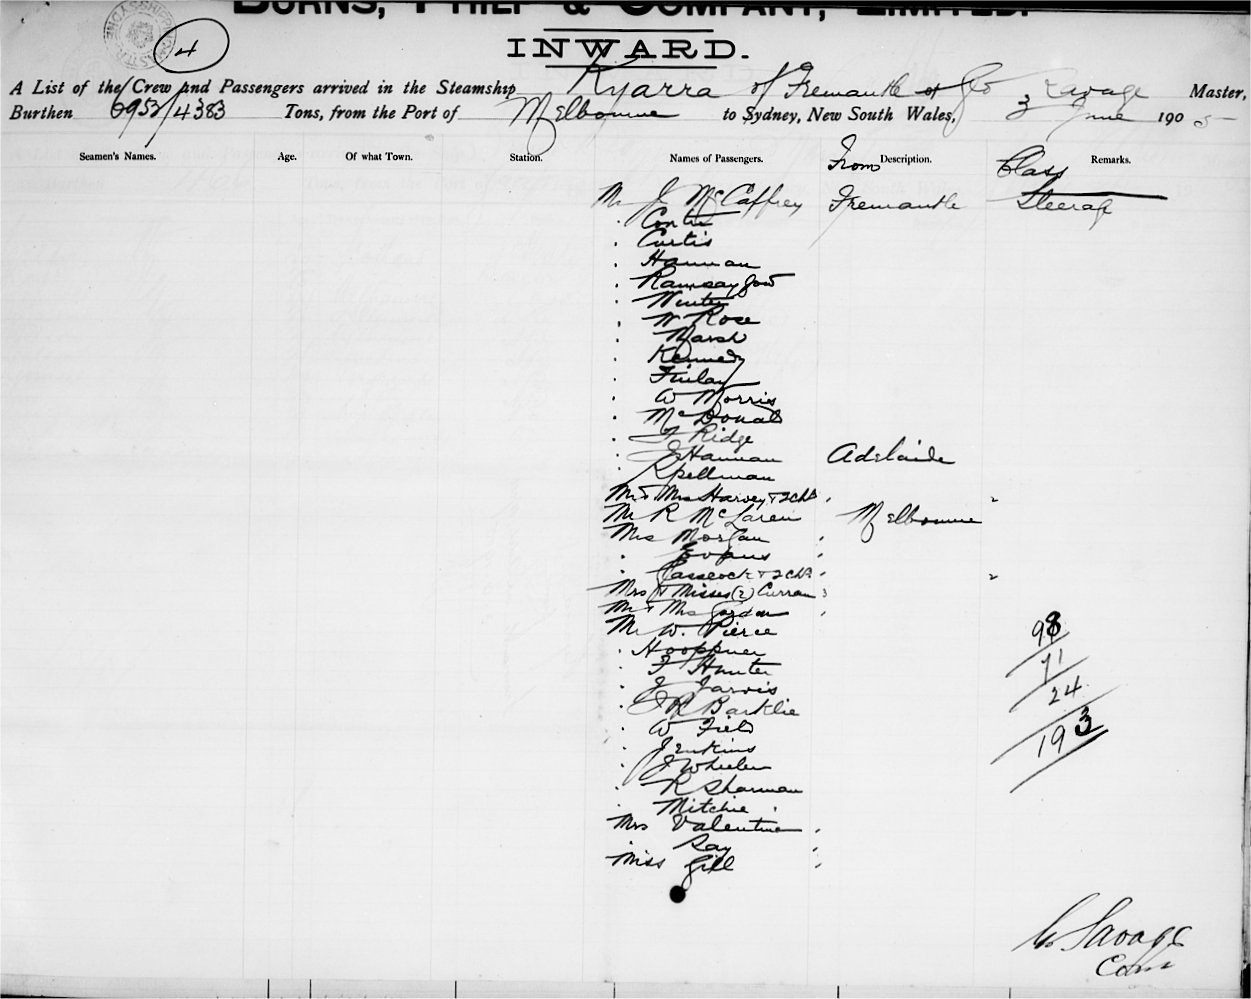 BURNS, PHILP & COMPANY, LIMITED.
4
INWARD.
A List of the Crew and Passengers arrived in the Steamship Kyarra of Fremantle Geo Savage Master,
Burthen 6953/4383 Tons, from the Port of Melbourne to Sydney, New South Wales, 3 June 1905
Seamen's Names. Age. Of what Town. Station. Names of Passengers. From Description. Class Remarks.
Mr J McCaffrey Fremantle Steerage
. Curtis
. Hannan
. Ramsay
. Winter
. W Rose
. Marsh
. Kennedy
. Finlay
. W Morris
. McDonald
. Ridge
. J Hannan Adelaide
. Spellman
Mr & Mrs Harvey & 2 chn
Mr R McLaren Melbourne
Mrs Morgan
. Evans
. Casscock & 2 chn
Mrs & Misses (2) Curran
Mr & Mrs Gordon
Mr W. Pierce
. Hooppner
. F Hunter
. J Jarvis
. J R Barklie
. W Field
. Jenkins
. J Wheeler
. R Sharman
. Mitchie
Mrs Valentine
. Say
Miss Gill
98
71
24
193
G Savage
Com